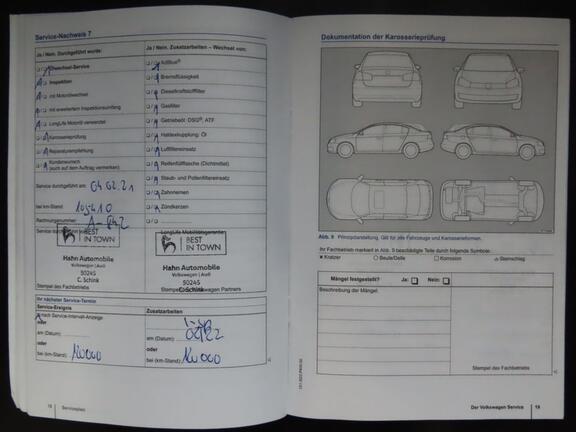 Service-Nachweis 7
Ja / Nein. Durchgeführt wurde:
Ölwechsel-Service
Inspektion
mit Motorölwechsel
mit erweitertem Inspektionsumfang
LongLife Motoröl verwendet
Karosserieprüfung
Reparaturempfehlung
Kundenwunsch
(auch auf dem Auftrag vermerken)
Service durchgeführt am: 04.02.21
bei km-Stand:
Rechnungsnummer:
Service durchgeführt
BEST
IN TOWN
Hahn Automobile
Volkswagen | Audi
50245
C. Schink
Stempel des Fachbetriebs
Ja / Nein. Zusatzarbeiten – Wechsel von:
AdBlue®
Bremsflüssigkeit
Dieselkraftstofffilter
Gasfilter
Getriebeöl: DSG®, ATF
Haldexkupplung: Öl
Luftfiltereinsatz
Reifenfüllflasche (Dichtmittel)
Staub- und Pollenfiltereinsatz
Zahnriemen
Zündkerzen
LongLife Mobilitätsgarantie
BEST
IN TOWN
Hahn Automobile
Volkswagen | Audi
50245
C. Schink
Stempel Volkswagen Partners
Ihr nächster Service-Termin
Service-Ereignis
nach Service-Intervall-Anzeige
oder
am (Datum):
oder
bei (km-Stand): 120000
Zusatzarbeiten
am (Datum):
oder
bei (km-Stand): 120000
18 Serviceplan
Dokumentation der Karosserieprüfung
Abb. 9 Prinzipdarstellung. Gilt für alle Fahrzeuge und Karosserieformen.
Ihr Fachbetrieb markiert in Abb. 9 beschädigte Teile durch folgende Symbole:
× Kratzer ○ Beule/Delle □ Korrosion △ Steinschlag
Mängel festgestellt? Ja: □ Nein: □
Beschreibung der Mängel:
Stempel des Fachbetriebs
Der Volkswagen Service 19